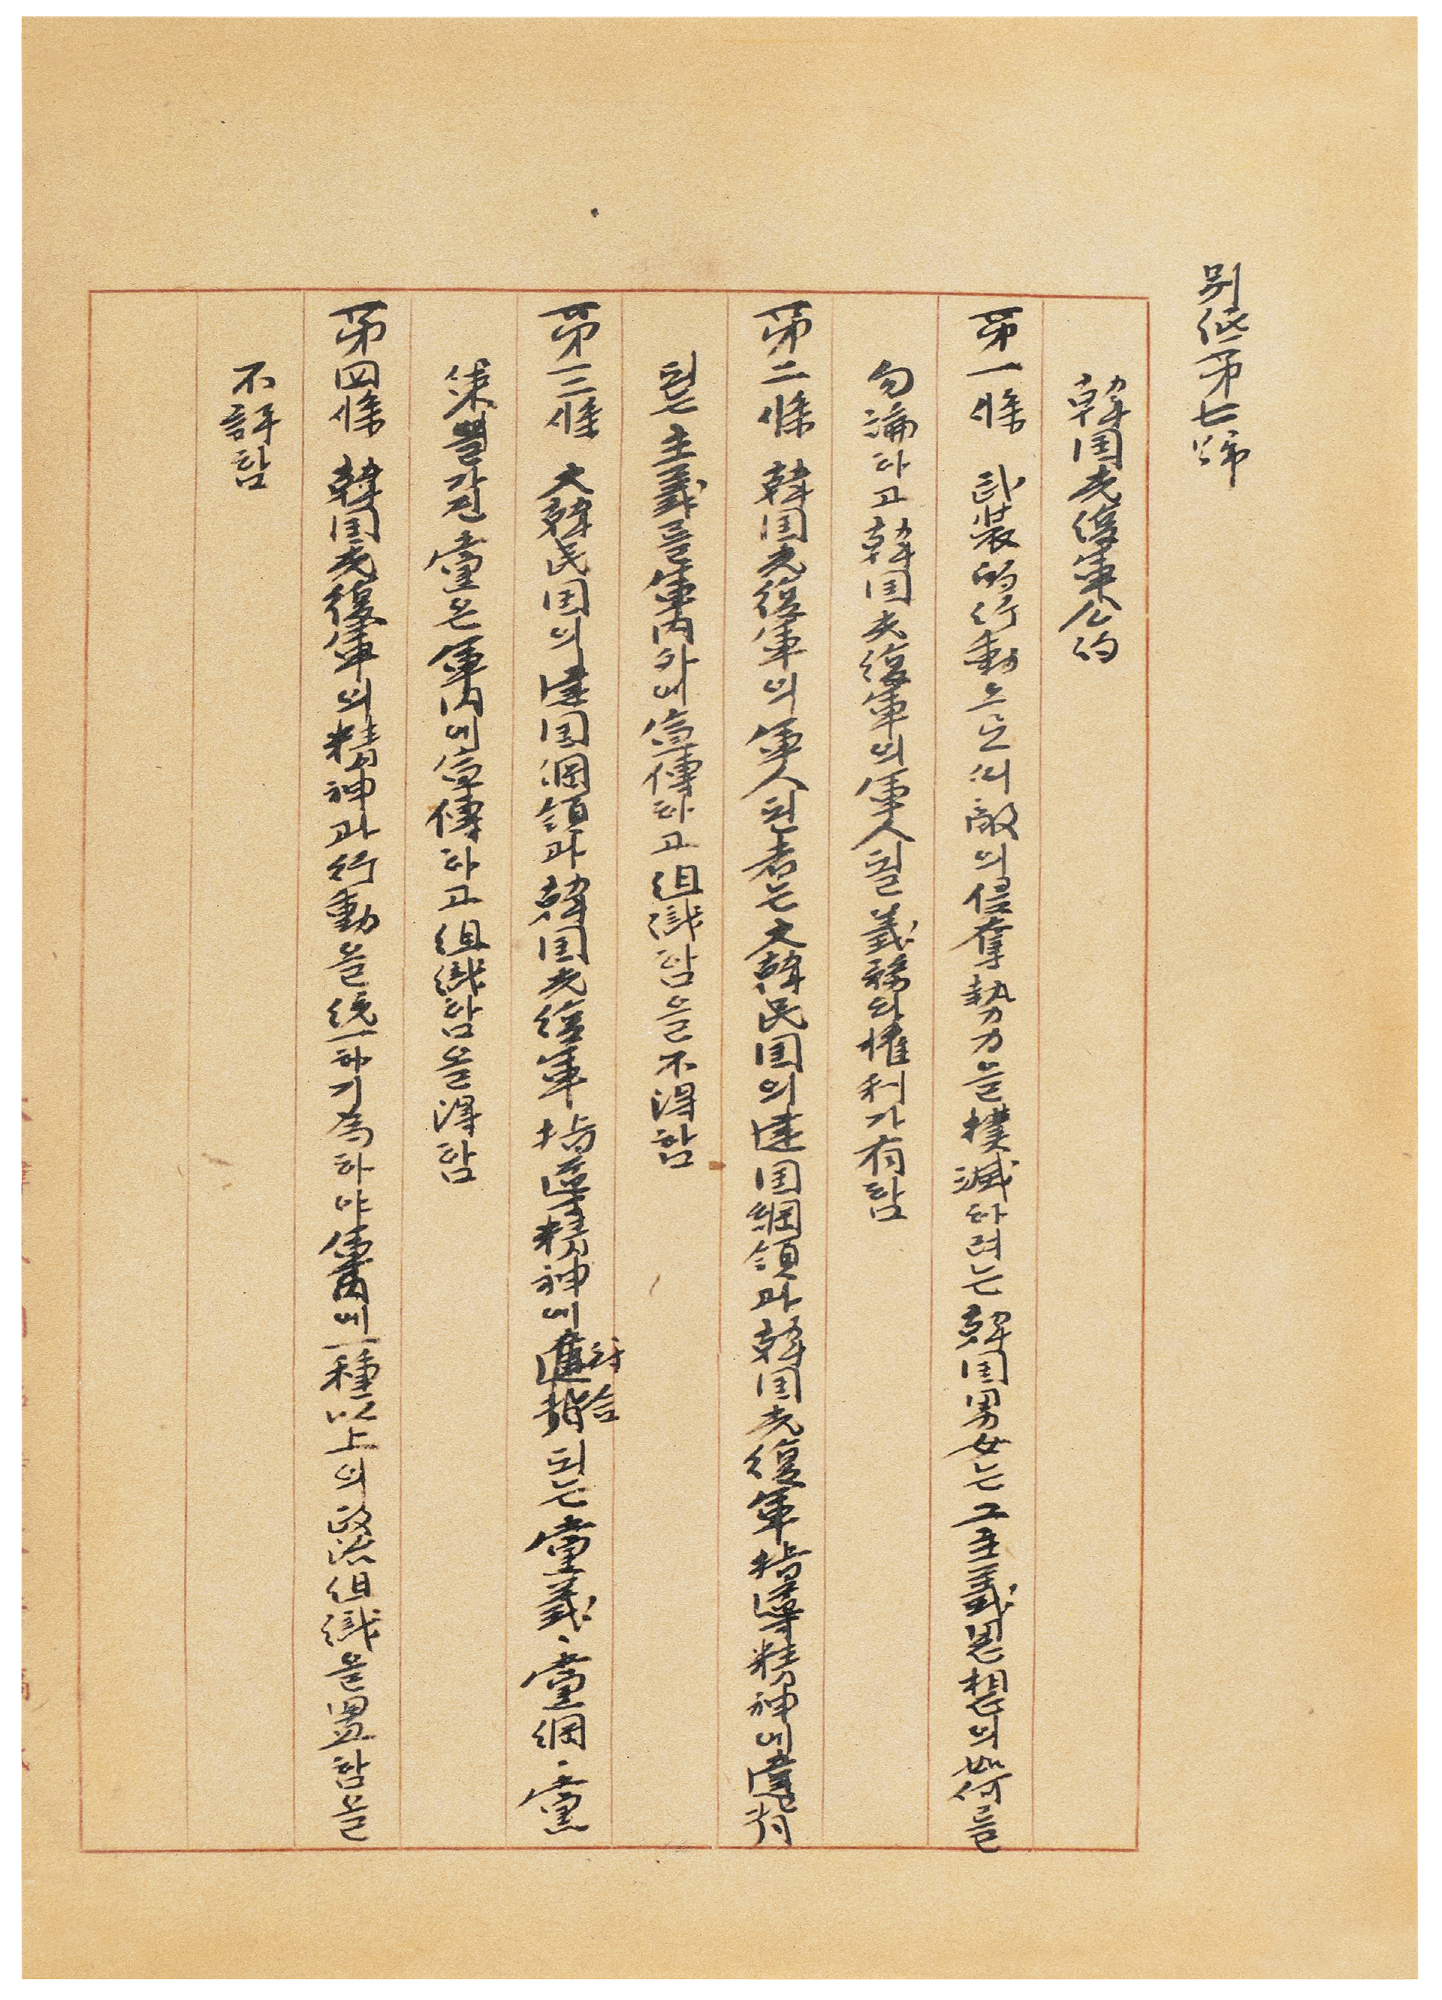 別紙第七號
韓国光復軍公約
第一條 武裝的行動으로써 敵의 侵奪勢力을 撲滅하려는 韓国男女는 그 主義思想의 如何를
勿論하고 韓国光復軍의 軍人될 義務와 權利가 有함
第二條 韓国光復軍의 軍人된 者는 大韓民国의 建国綱領과 韓国光復軍 指揮精神에 違背
되는 主義를 軍內外에 宣傳하고 組織함을 不得함
第三條 大韓民国의 建国綱領과 韓国光復軍 指揮精神에 符合되는 黨義、黨綱、黨
策을 가진 黨은 軍內에 宣傳하고 組織함을 得함
第四條 韓国光復軍의 精神과 行動을 統一하기 爲하야 軍內에 一種以上의 政治組織을 置함을
不許함